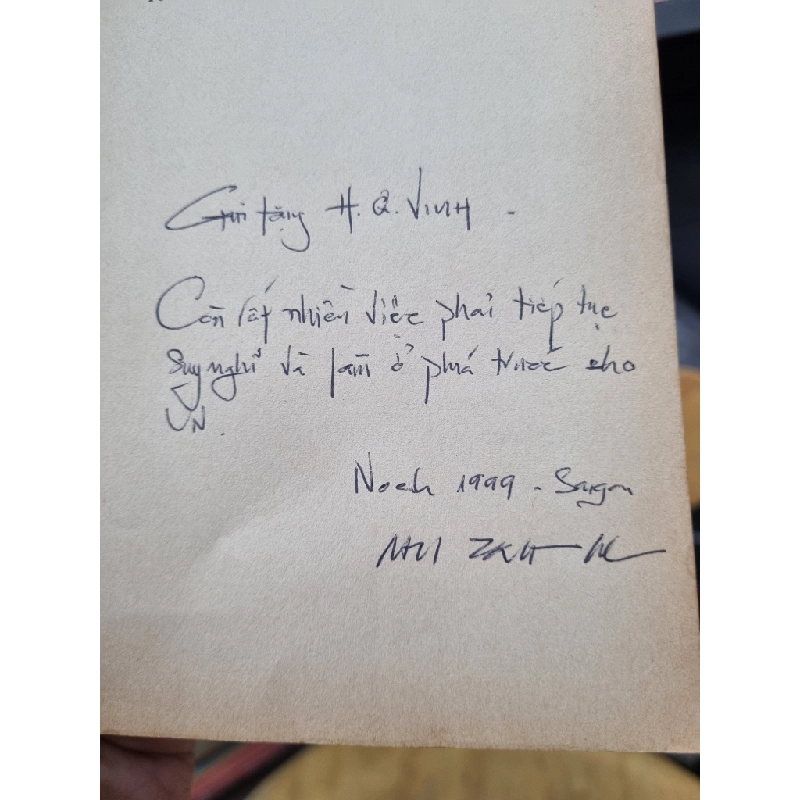 Gửi tặng H. Q. VINH -
Còn rất nhiều việc phải tiếp tục
suy nghĩ và làm ở phía trước cho
VN.
Noel 1999 - Saigon